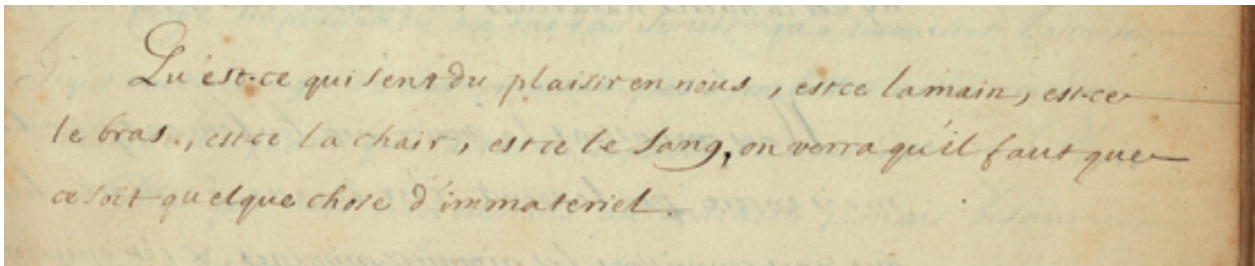 Qu'est-ce qui sent du plaisir en nous, est ce la main, est-ce
le bras, est-ce la chair, est ce le sang, on verra qu'il faut que
ce soit quelque chose d'immateriel.